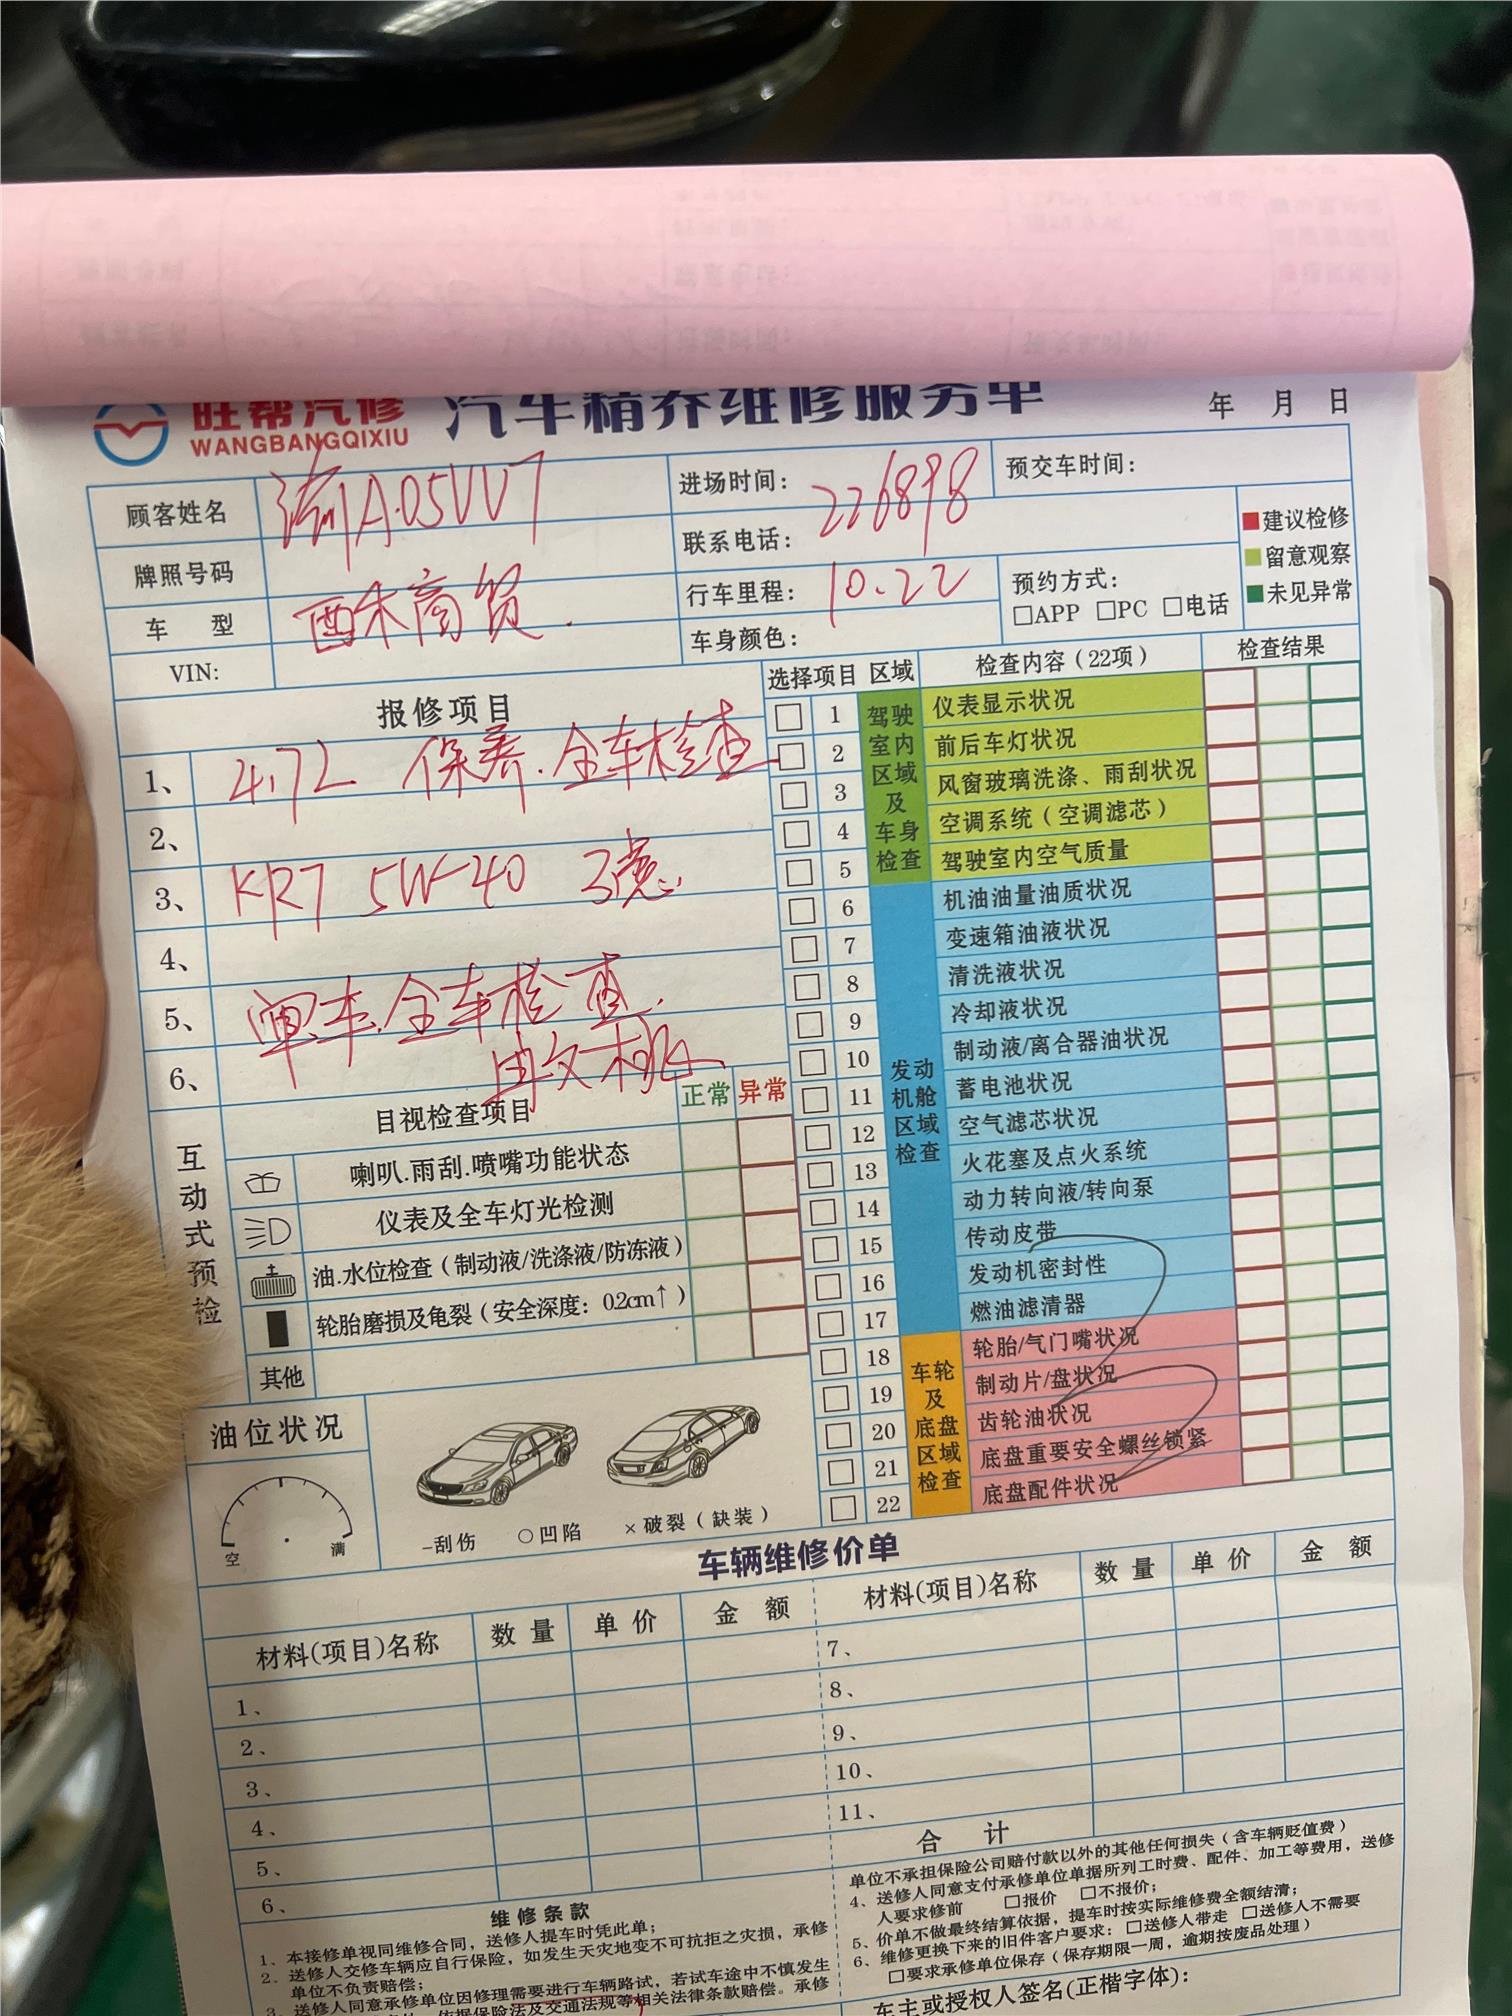 旺帮汽修 汽车精养维修服务单 年 月 日
WANGBANGQIXIU
顾客姓名 A·05VV7 进场时间: 226898 预交车时间:
牌照号码 联系电话:
车 型 酉禾商贸. 行车里程: 10.22 预约方式:
□APP □PC □电话
VIN: 车身颜色:
■建议检修
■留意观察
■未见异常
报修项目
1、 4.7L 保养.全车检查
2、
3、 KR7 5W-40 3滤
4、
5、 .全车检查.
6、
互动式预检
目视检查项目 正常 异常
喇叭.雨刮.喷嘴功能状态
仪表及全车灯光检测
油.水位检查(制动液/洗涤液/防冻液)
轮胎磨损及龟裂(安全深度: 0.2cm↑)
其他
油位状况
空 满
-刮伤 ○凹陷 ×破裂(缺装)
选择项目 区域 检查内容(22项) 检查结果
驾驶室内区域及车身检查
□ 1 仪表显示状况
□ 2 前后车灯状况
□ 3 风窗玻璃洗涤、雨刮状况
□ 4 空调系统(空调滤芯)
□ 5 驾驶室内空气质量
发动机舱区域检查
□ 6 机油油量油质状况
□ 7 变速箱油液状况
□ 8 清洗液状况
□ 9 冷却液状况
□ 10 制动液/离合器油状况
□ 11 蓄电池状况
□ 12 空气滤芯状况
□ 13 火花塞及点火系统
□ 14 动力转向液/转向泵
□ 15 传动皮带
□ 16 发动机密封性
□ 17 燃油滤清器
车轮及底盘区域检查
□ 18 轮胎/气门嘴状况
□ 19 制动片/盘状况
□ 20 齿轮油状况
□ 21 底盘重要安全螺丝锁紧
□ 22 底盘配件状况
车辆维修价单
材料(项目)名称 数 量 单 价 金 额 材料(项目)名称 数 量 单 价 金 额
1、 7、
2、 8、
3、 9、
4、 10、
5、 11、
6、 合 计
维修条款
1、本接修单视同维修合同,送修人提车时凭此单;
2、送修人交修车辆应自行保险,如发生天灾地变不可抗拒之灾损,承修
单位不负责赔偿;
3、送修人同意承修单位因修理需要进行车辆路试,若试车途中不慎发生
依据保险法及交通法规等相关法律条款赔偿。承修
单位不承担保险公司赔付款以外的其他任何损失(含车辆贬值费)
4、送修人同意支付承修单位单据所列工时费、配件、加工等费用,送修
人要求修前 □报价 □不报价;
5、价单不做最终结算依据,提车时按实际维修费全额结清;
6、维修更换下来的旧件客户要求: □送修人带走 □送修人不需要
□要求承修单位保存(保存期限一周,逾期按废品处理)
车主或授权人签名(正楷字体):